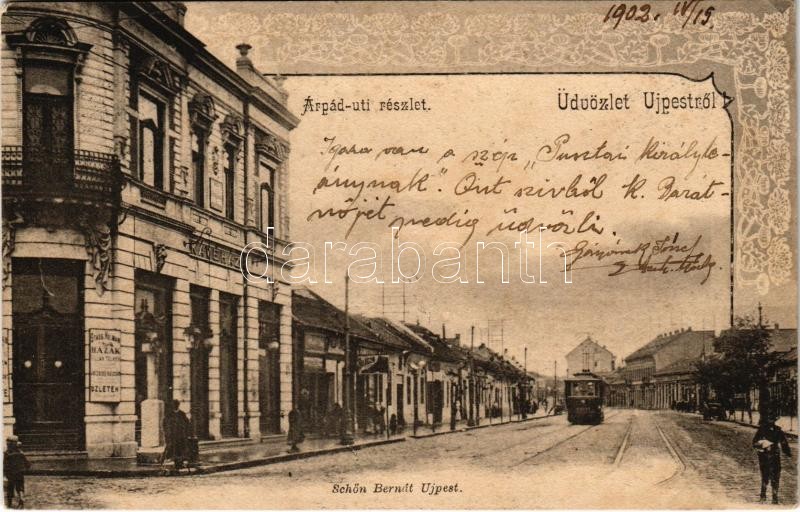 1902. IV/15
Árpád-uti részlet.
Üdvözlet Ujpestről!
Igaza van a szép "Pusztai Királyle-
ánynak". Önt szivből k. Barát-
nőjét pedig üdvözli.
József
darabanth
HÁZAK
ÜZLETEK
Schön Bernát Ujpest.